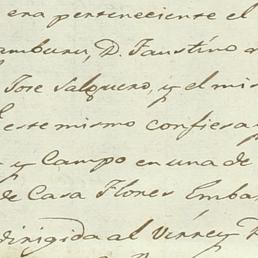 era perteneciente el
amburu, D. Faustino
Jose Salguero, y el mis
Este mismo confiesa
y Campo en una de
de Casa Flores Emba
dirigida al Virrey